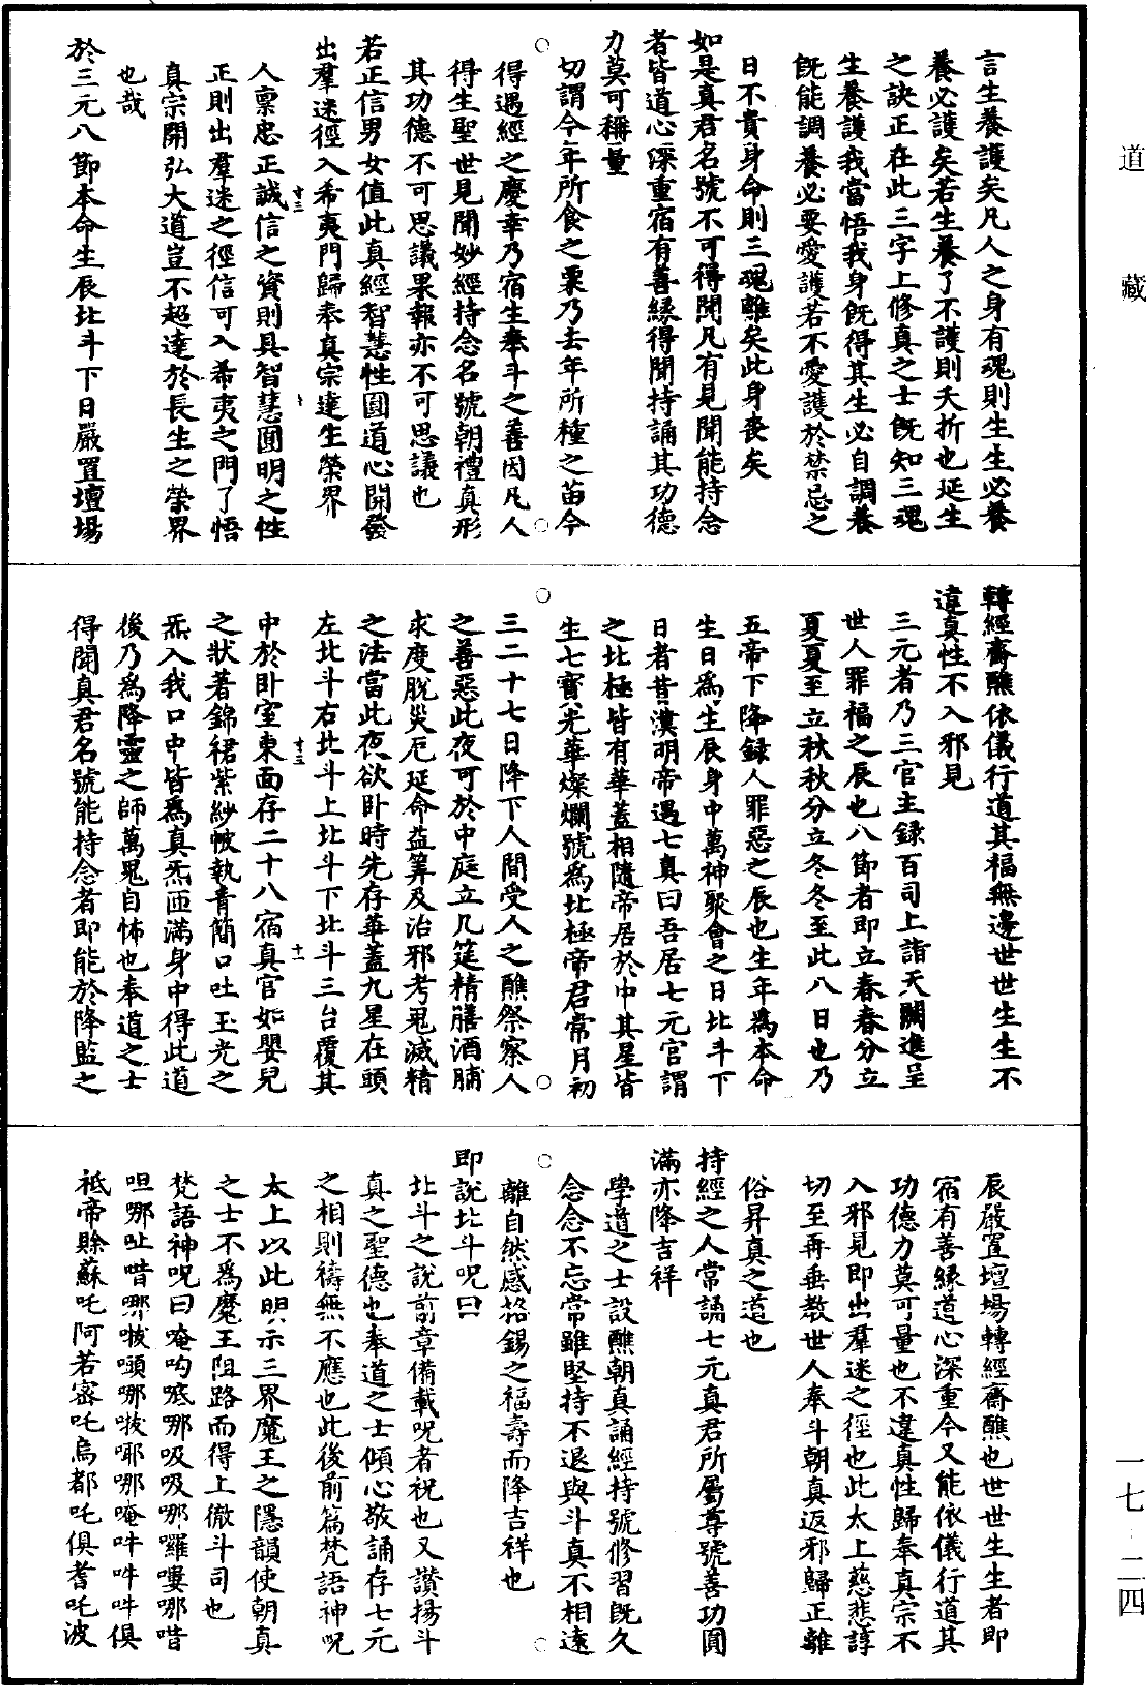 言生養護矣凡人之身有魂則生生必養
養必護矣若生養了不護則夭折也延生
之訣正在此三字上修真之士旣知三魂
生養護我當悟我身旣得其生必自調養
旣能調養必要愛護若不愛護於禁忌之
日不貴身命則三魂離矣此身喪矣
如是真君名號不可得聞凡有見聞能持念
者皆道心深重宿有善緣得聞持誦其功德
力莫可稱量
切謂今年所食之粟乃去年所種之苗今
得遇經之慶幸乃宿生奉斗之善因凡人
得生聖世見聞妙經持念名號朝禮真形
其功德不可思議果報亦不可思議也
若正信男女值此真經智慧性圓道心開發
出羣迷徑入希夷門歸奉真宗達生榮界
人稟忠正誠信之資則具智慧圓明之性
十三
正則出羣迷之徑信可入希夷之門了悟
真宗開弘大道豈不超達於長生之榮界
也哉
於三元八節本命生辰北斗下日嚴置壇場
轉經齋醮依儀行道其福無邊世世生生不
違真性不入邪見
三元者乃三官主録百司上詣天闕進呈
世人罪福之辰也八節者即立春春分立
夏夏至立秋秋分立冬冬至此八日也乃
五帝下降録人罪惡之辰也生年爲本命
生日爲生辰身中萬神聚會之日北斗下
日者昔漢明帝遇七真曰吾居七元官謂
之北極皆有華蓋相隨帝居於中其星皆
生七寳光華燦爛號爲北極帝君常月初
三二十七日降下人間受人之醮祭察人
之善惡此夜可於中庭立几筵精膳酒脯
求度脫災厄延命益筭及治邪考鬼滅精
之法當此夜欲卧時先存華蓋九星在頭
左北斗右北斗上北斗下北斗三台覆其
中於卧室東面存二十八宿真官如嬰兒
十三
十一
之狀著錦裙紫紗帔執青簡口吐玉光之
炁入我口中皆爲真炁匝滿身中得此道
後乃爲降靈之師萬鬼自怖也奉道之士
得聞真君名號能持念者即能於降監之
辰嚴置壇場轉經齋醮也世世生生者即
宿有善緣道心深重今又能依儀行道其
功德力莫可量也不違真性歸奉真宗不
入邪見即出羣迷之徑也此太上慈悲諄
切至再垂教世人奉斗朝真返邪歸正離
俗昇真之道也
持經之人常誦七元真君所屬尊號善功圓
滿亦降吉祥
學道之士設醮朝真誦經持號修習旣久
念念不忘常雖堅持不退與斗真不相遠
離自然感格錫之福壽而降吉祥也
即說北斗呪曰
北斗之說前章備載呪者祝也又讃揚斗
真之聖德也奉道之士傾心敬誦存七元
之相則禱無不應也此後前篇梵語神呪
太上以此明示三界魔王之隱韻使朝真
之士不爲魔王阻路而得上徹斗司也
梵語神呪曰唵呴哌哪吸吸哪囉嘍哪喈
呾哪吡喈哪㗑㘈哪㗑哪哪唵吽吽吽俱
祇帝賖蘇吒阿若密吒烏都吒俱耆吒波
道藏
一七-二四